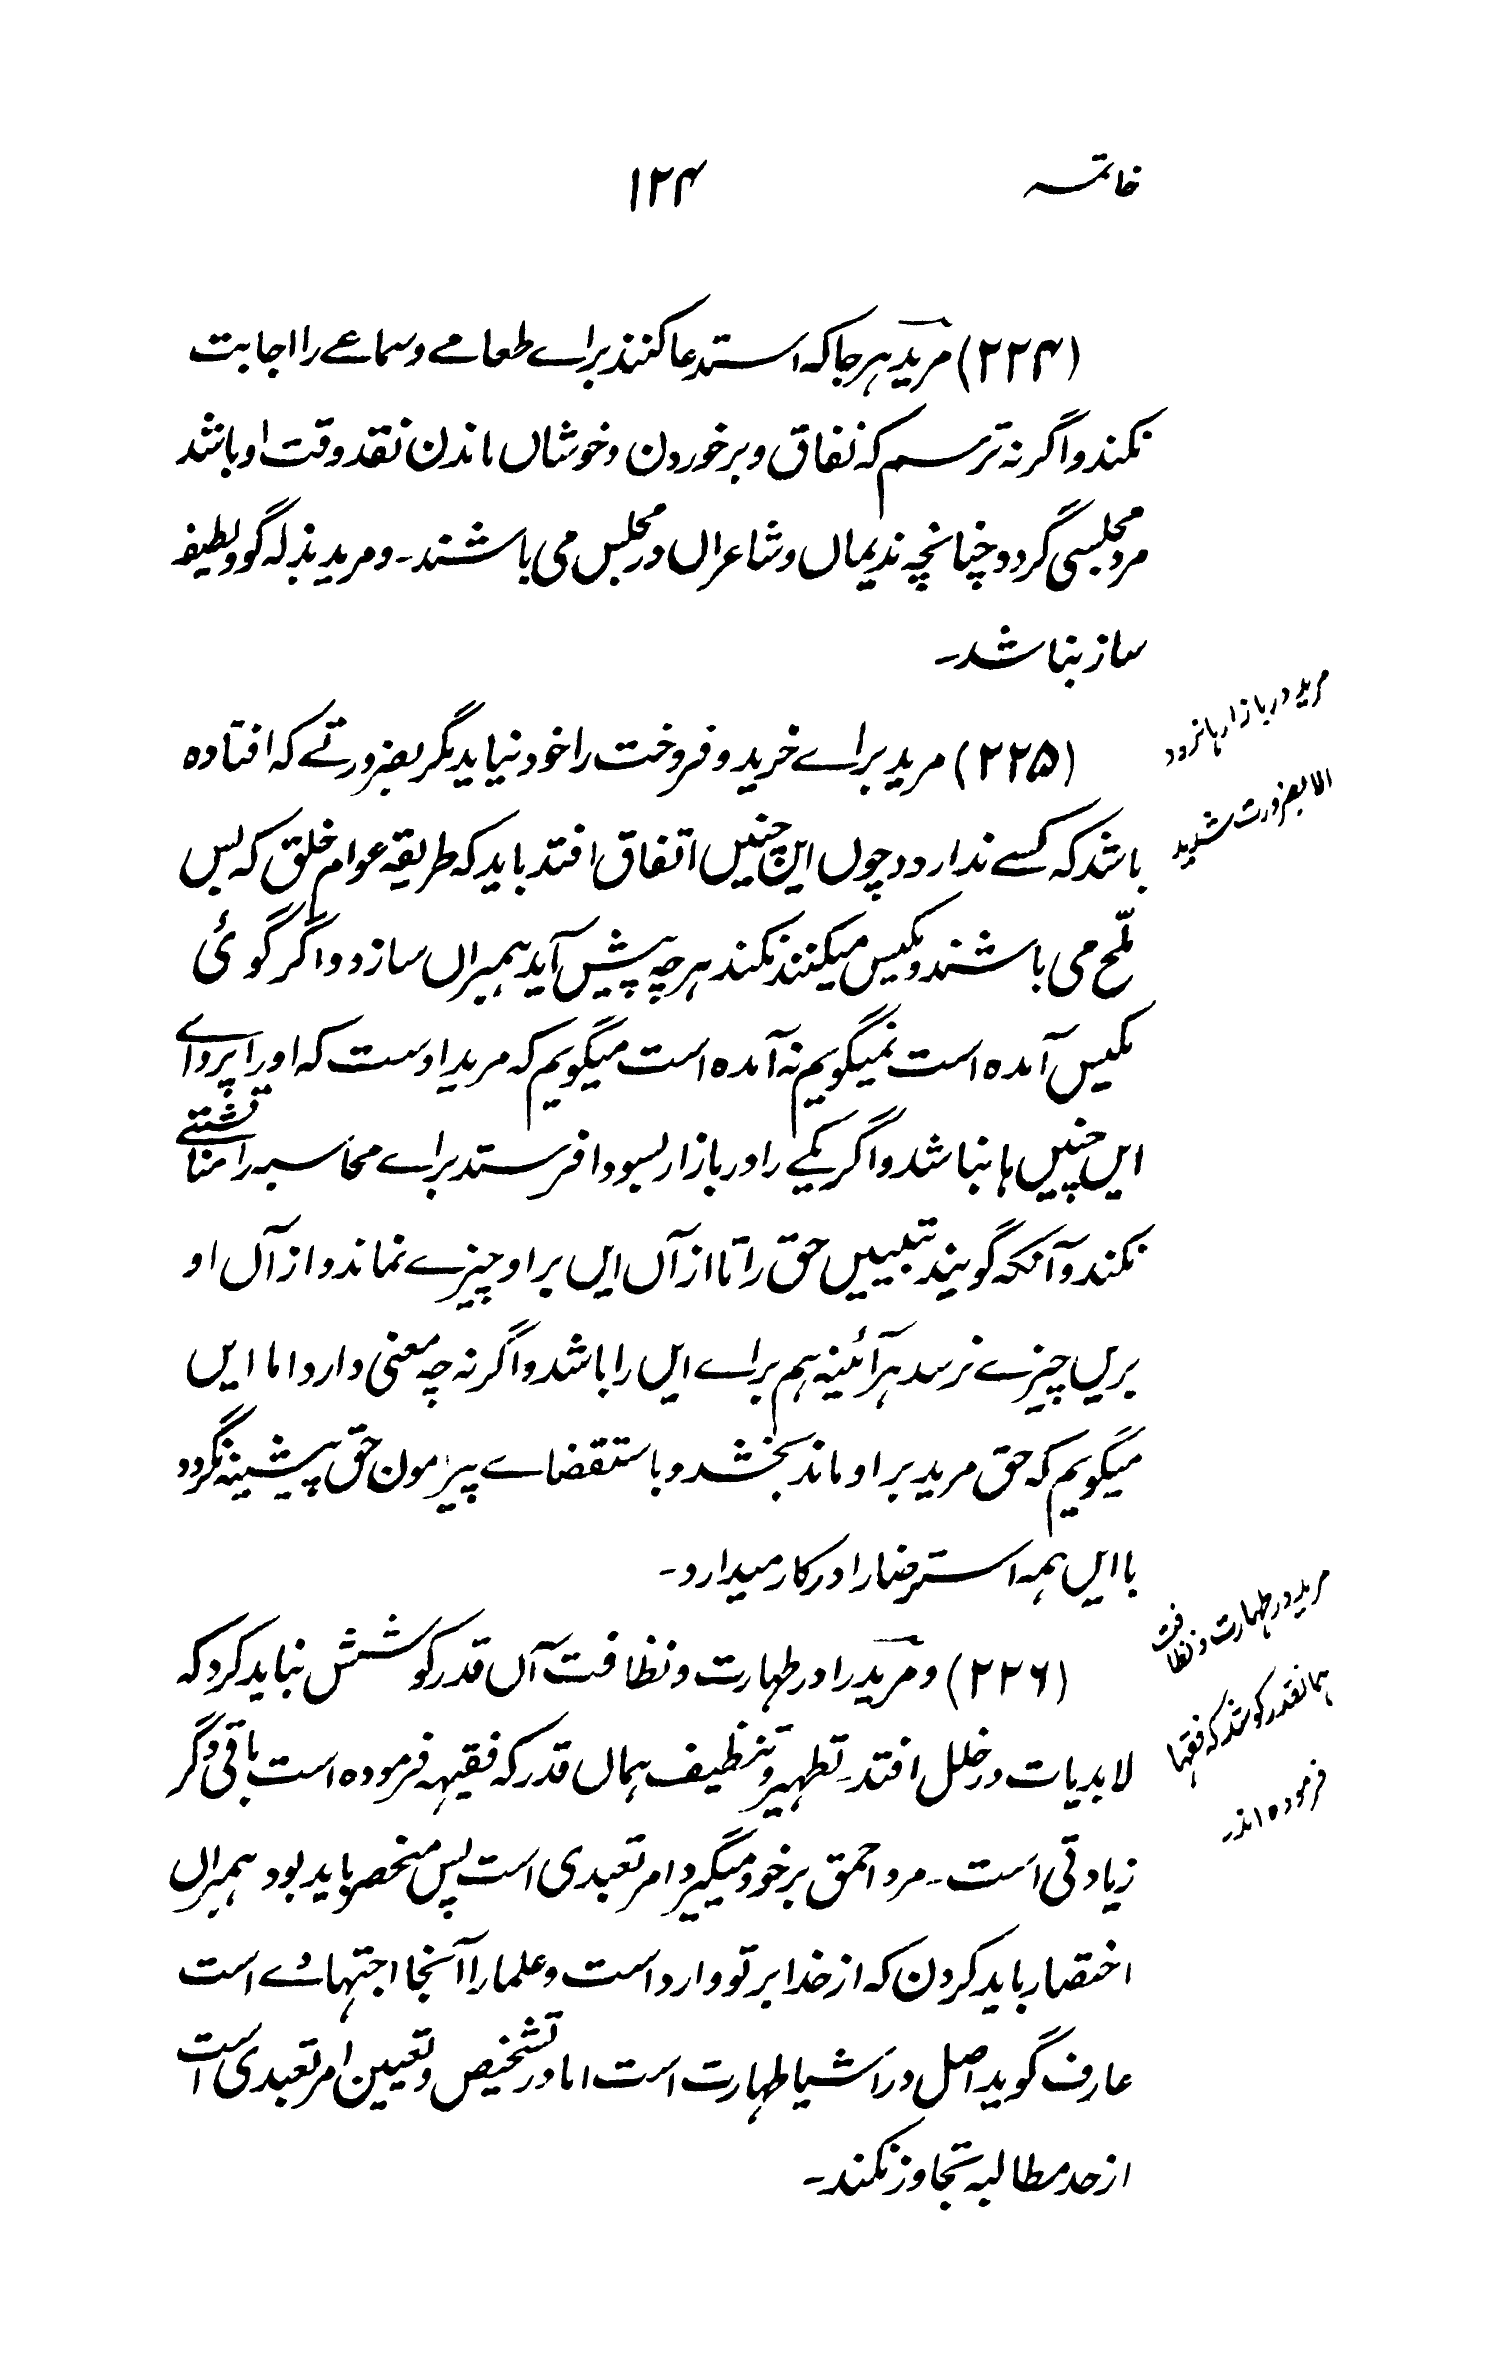 خاتمہ ۱۲۴
(۲۲۴) مرید ہر جا کہ استدعا کنند برائے طعامے و سماعے را اجابت
نکند و اگر نہ ترسم کہ نفاق و برخوردن و خوشاں ماندن نقد وقت او باشد
مرد مجلسی گردد چنانچہ ندیماں و شاعراں در مجلس می باشند۔ و مرید بذلہ گو و لطیفہ
ساز نباشد۔
مرید در بازارہا نرود
الا بضرورت شدید
(۲۲۵) مرید برائے خرید و فروخت را خود نیاید مگر بضرورتے کہ افتادہ
باشد کہ کسے ندارد و چوں ایں چنیں اتفاق افتد باید کہ طریقہ عوام خلق کہ بس
ملّح می باشند و مکیس میکنند نکند ہرچہ پیش آید ہمبراں سازد و اگر گوئی
مکیس آمدہ است نمیگویم نہ آمدہ است میگویم کہ مرید اوست کہ او را پرواے
ایں چنیں ہا نباشد و اگر یکے را در بازار بسودا فرستد برائے محاسبہ را مناقشتے
نکند و آنکہ گویند تبیین حق را تا از آں ایں بر او چیزے نماند و از آں او
بریں چیزے نرسد ہر آئینہ ہم برائے ایں را باشد و اگر نہ چہ معنی دارد اما ایں
میگویم کہ حق مرید بر او ماند بخشد و باستقضاے پیرمون حق پیشینہ نگردد
با ایں ہمہ استرضا را در کار میدارد۔
مرید در طہارت و نظافت
ہمانقدر کوشد کہ فقہا
فرمودہ اند۔
(۲۲۶) و مرید را در طہارت و نظافت آں قدر کوشش نباید کرد کہ
لابدیات در خلل افتد۔ تطہیر و تنظیف ہماں قدر کہ فقیہہ فرمودہ است باقی دگر
زیادتی است۔ مرد احمق بر خود میگیرد امر تعبدی است پس منحصر باید بود ہمبراں
اختصار باید کردن کہ از خدا بر تو وارد است و علما را آنجا اجتہادے است
عارف گوید اصل در اشیا طہارت است اما در تشخیص و تعیین امر تعبدی است
از حد مطالبہ تجاوز نکند۔